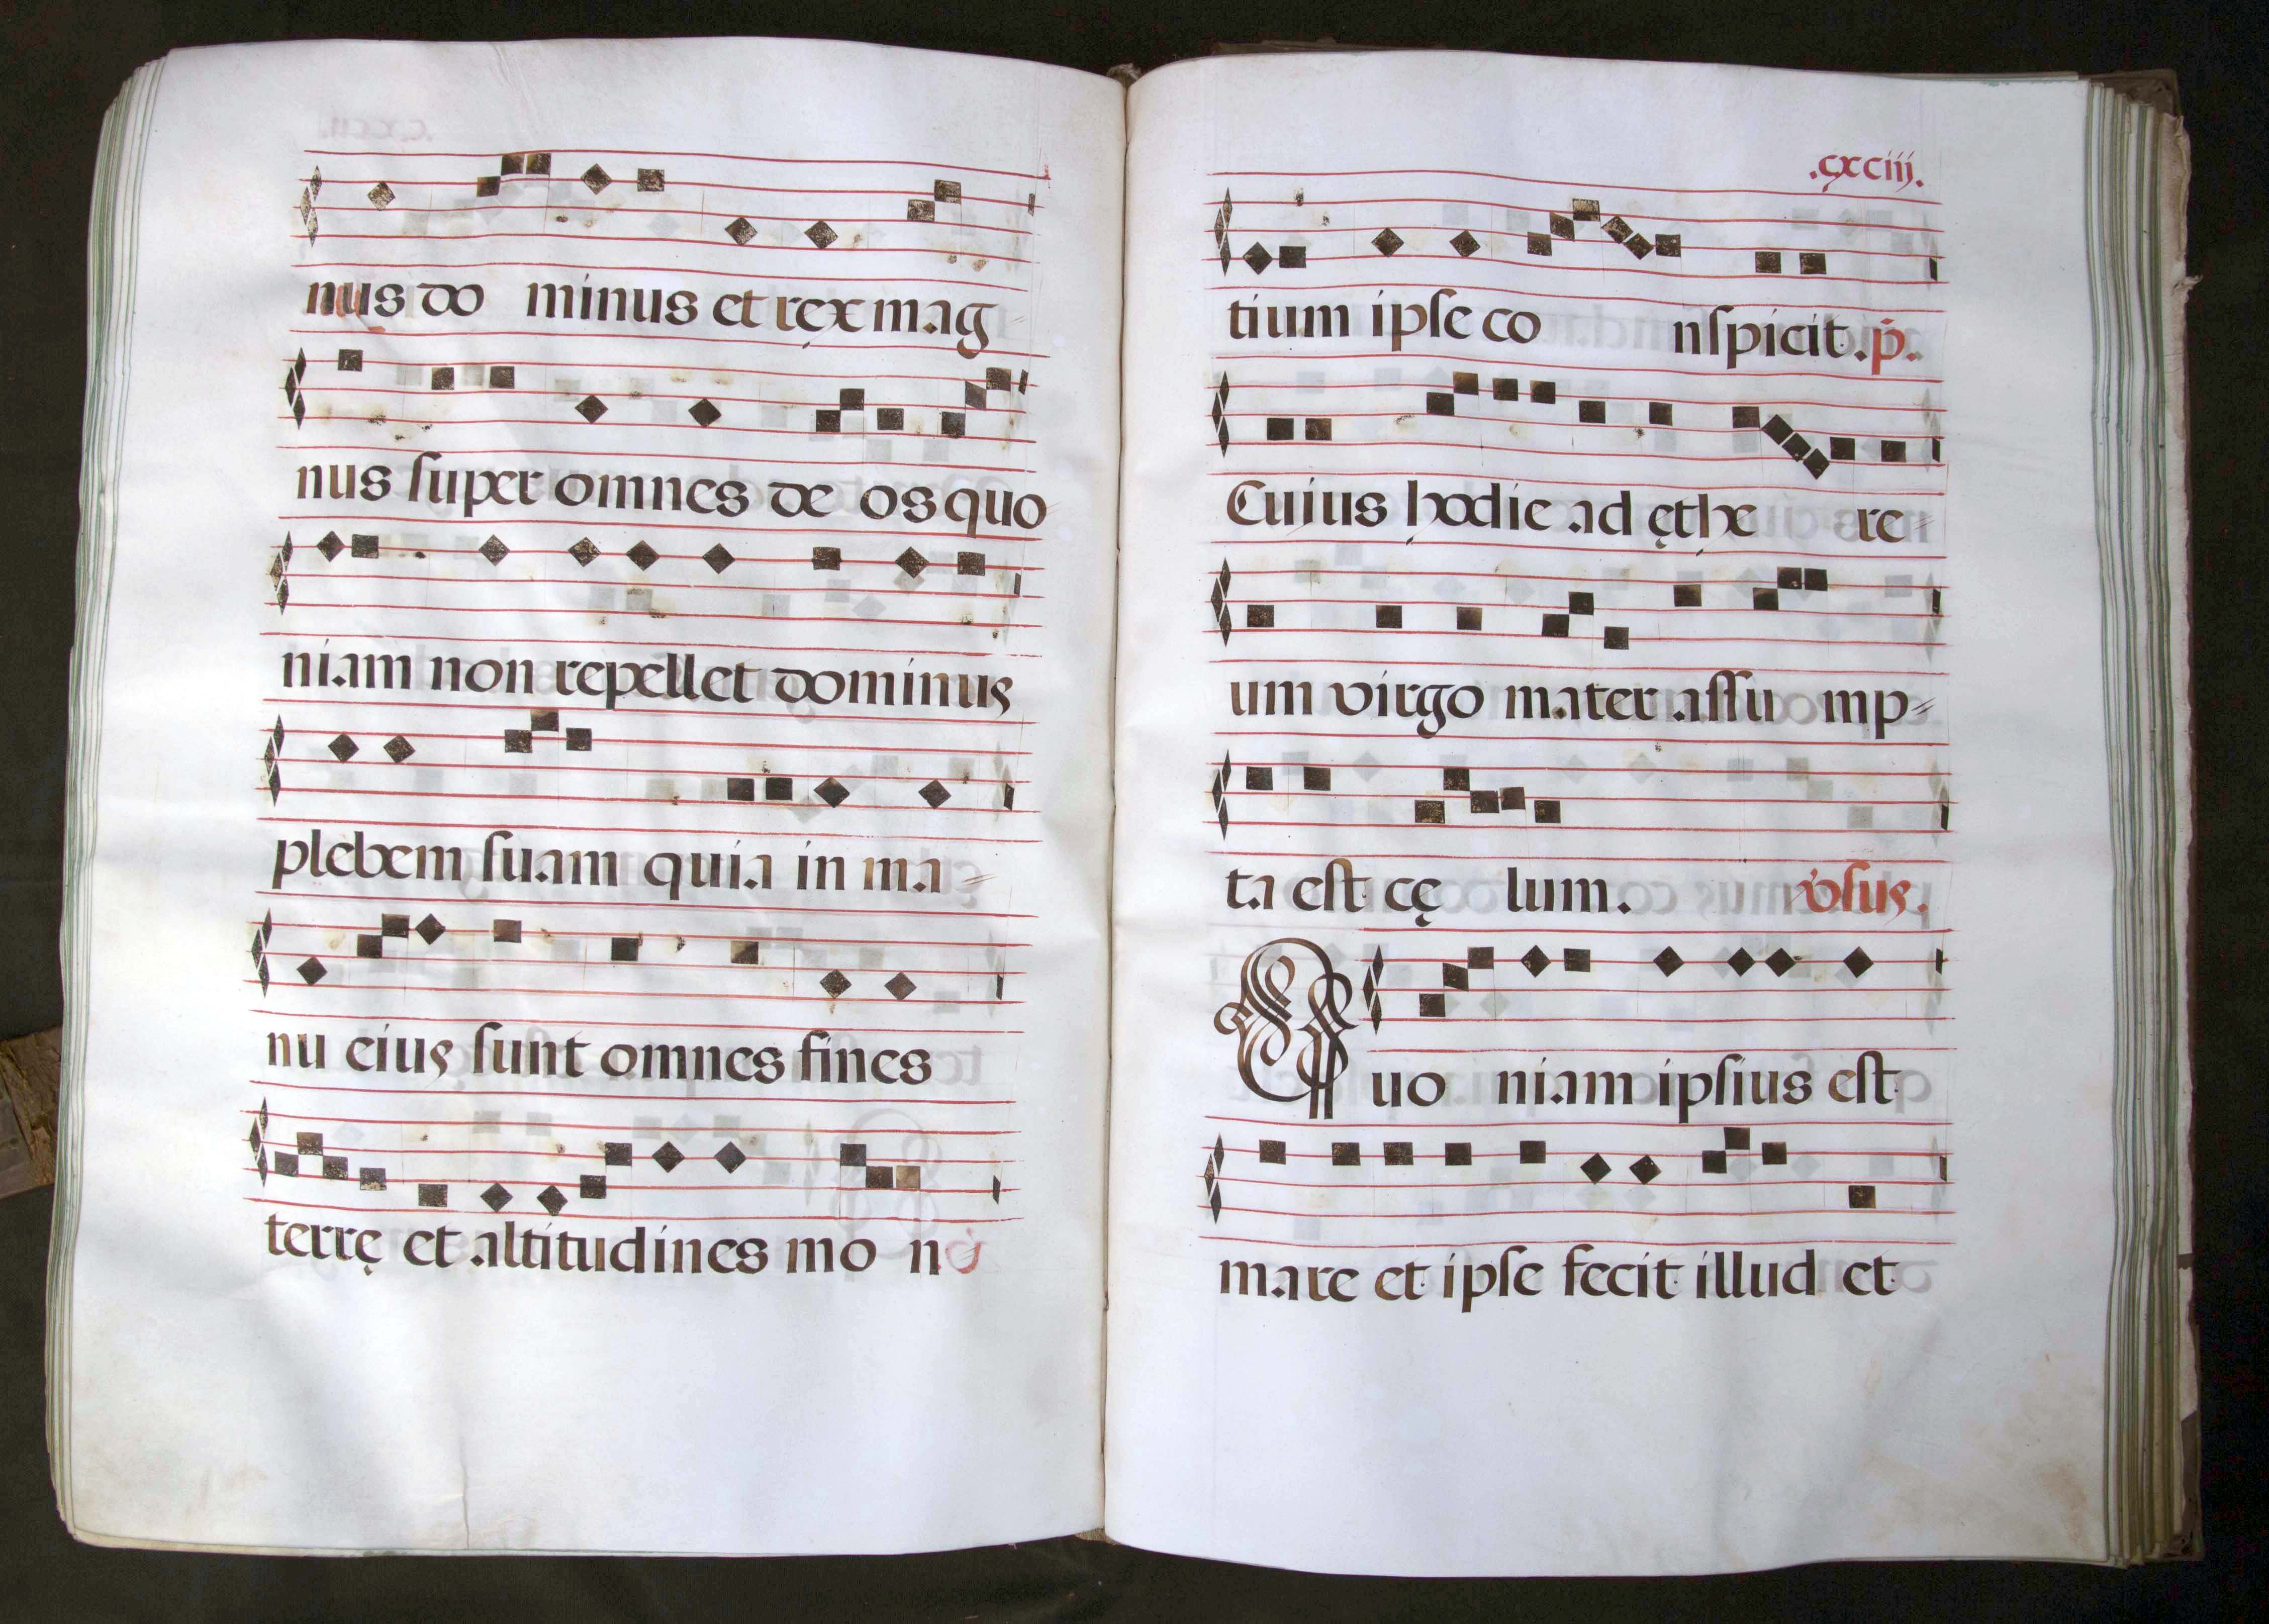 nus do minus et rex mag-
nus ſuper omnes de os quo-
niam non repellet dominus
plebem ſuam quia in ma-
nu eius ſunt omnes fines
terrę et altitudines mo n
.cxciij.
tium ipſe co nſpicit. p̄.
Cuius hodie ad ęthe re-
um virgo mater aſſu mp-
ta eſt cę lum. v̓ſus.
Quo niam ipſius eſt
mare et ipſe fecit illud et